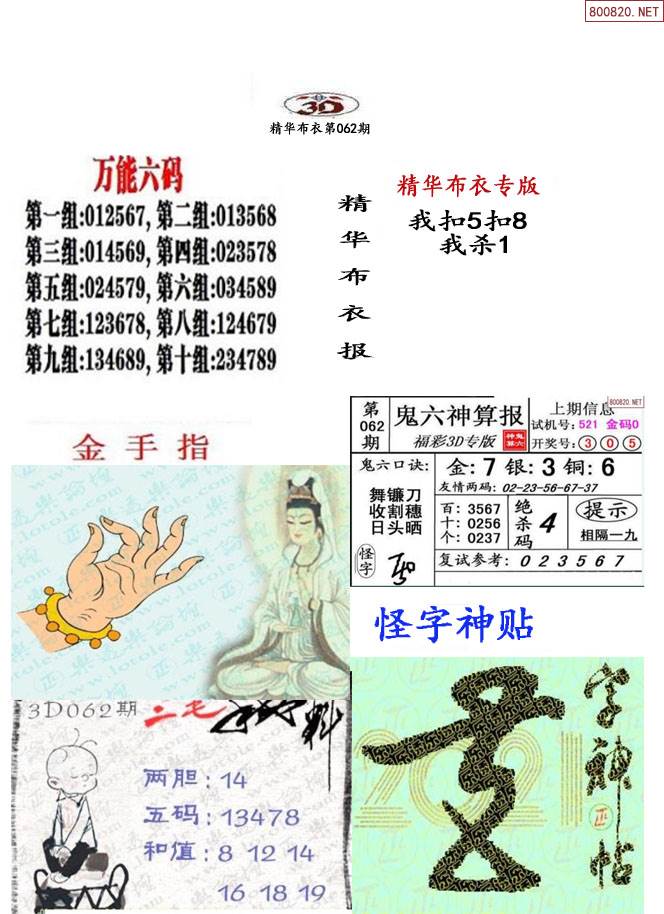 800820.NET
3D
精华布衣第062期
万能六码
第一组:012567, 第二组:013568
第三组:014569, 第四组:023578
第五组:024579, 第六组:034589
第七组:123678, 第八组:124679
第九组:134689, 第十组:234789
精华布衣报
精华布衣专版
我扣5扣8
我杀1
第062期
鬼六神算报
福彩3D专版
上期信息
800820.NET
试机号: 521 金码0
开奖号: 3 0 5
鬼六口诀:
舞镰刀
收割穗
日头晒
怪字
金: 7 银: 3 铜: 6
友情两码: 02-23-56-67-37
百: 3567
十: 0256
个: 0237
绝杀码
4
提示
相隔一九
复试参考: 0 2 3 5 6 7
金手指
怪字神贴
3D062期
两胆: 14
五码: 13478
和值: 8 12 14
16 18 19
2021
字神帖